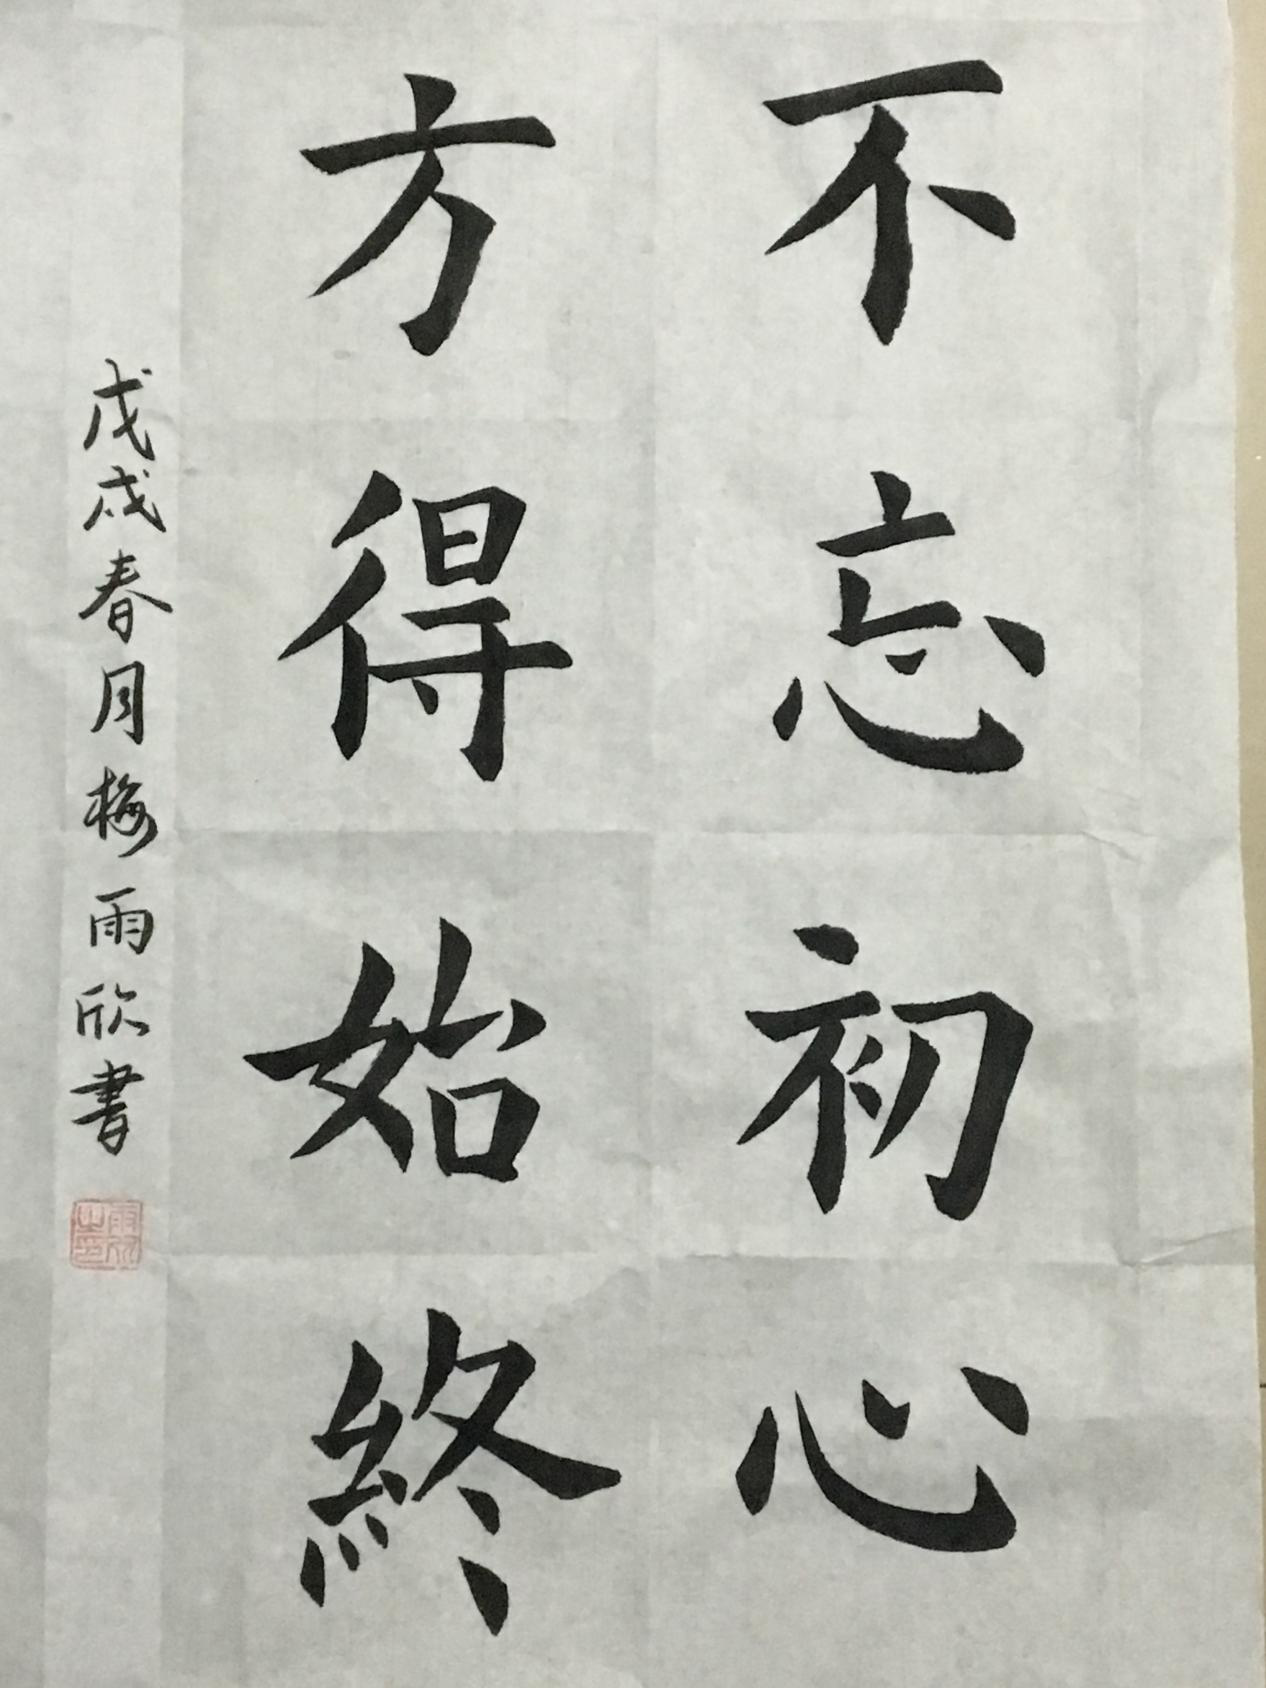 不忘初心
方得始終
戊戌春月梅雨欣書